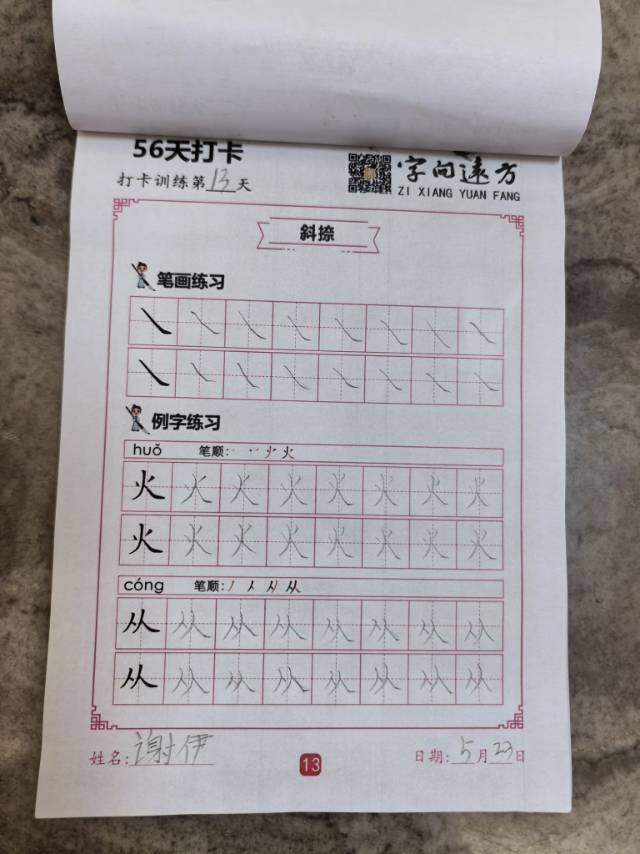 56天打卡
打卡训练第13天
字向远方
ZI XIANG YUAN FANG
斜捺
笔画练习
例字练习
huǒ 笔顺: 丶 丷 火 火
火 火 火 火 火 火 火 火
火 火 火 火 火 火 火 火
cóng 笔顺: 丿 人 从 从
从 从 从 从 从 从 从 从
从 从 从 从 从 从 从 从
姓名: 谢伊 13 日期: 5月23日